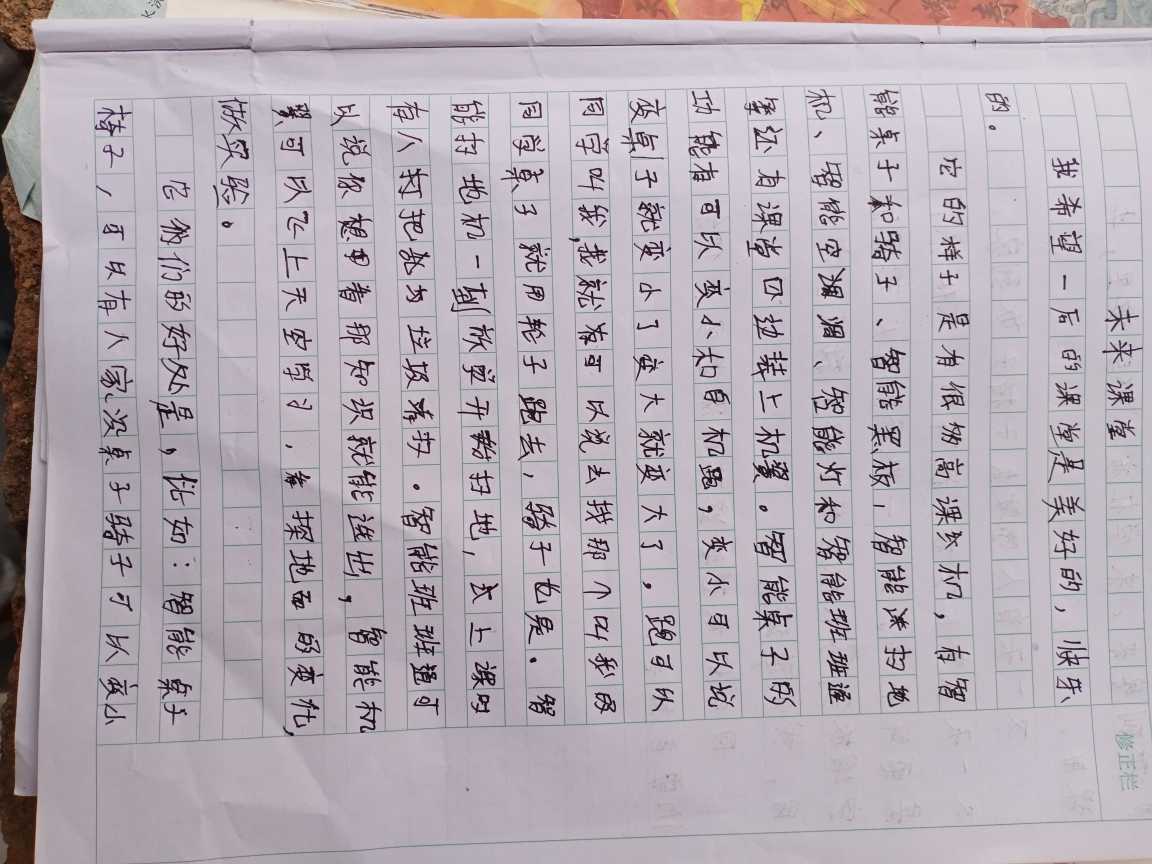 未来课堂
我希望一后的课堂是美好的，快乐
的。
它的样子是有很多高课机，有智
能桌子和椅子、智能黑板，智能洗扫地
机、智能空调、智能灯和智能班班通
还有课堂四边装上机翼。智能桌子的
功能有可以变小和自机跑，变小可以说
变桌子就变小了变大就变大了，跑可以
同学叫我，我就可以说去找那个叫我的
同学桌子就用轮子跑去，椅子也是。智
能扫地机一到放学开始扫地，或上课时
有人打把教为垃圾扫。智能班班通可
以说你想看那知识就能选出，智能机
翼可以飞上天空学习，探地面的变化，
做实验。
它们的好处是，比如：智能桌子
椅子，可以有人家没桌子椅子可以变小
修正栏